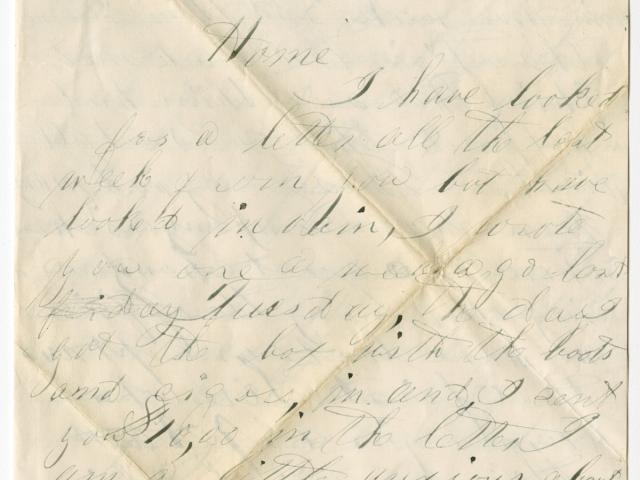 Home
I have looked
for a letter all the last
week from you but have
looked in vain, I wrote
you one a week ago last
friday Tuesday, the day I
got the box with the boots
and cigars, in and, I sent
you $10,00 in the letter I
am a little anxious about